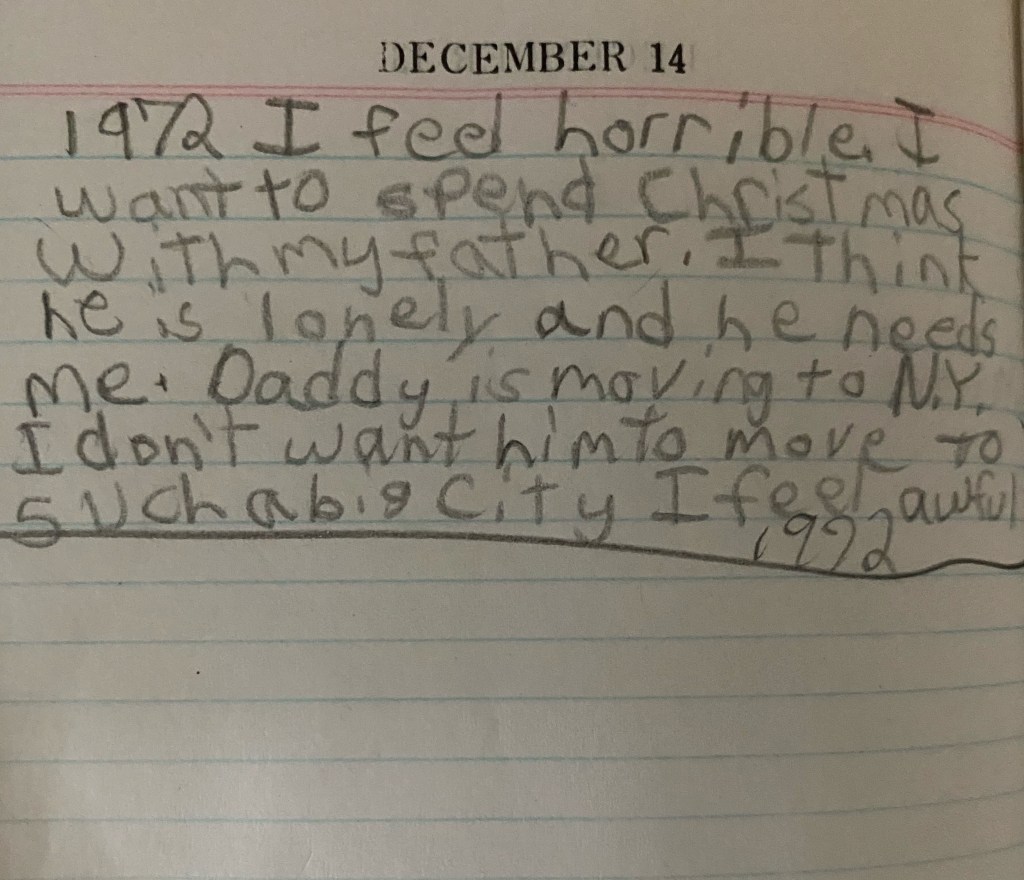 DECEMBER 14
1972 I feel horrible. I
want to spend Christmas
with my father. I think
he is lonely and he needs
me. Daddy is moving to N.Y.
I don't want him to move to
such a big city I feel awful
1972